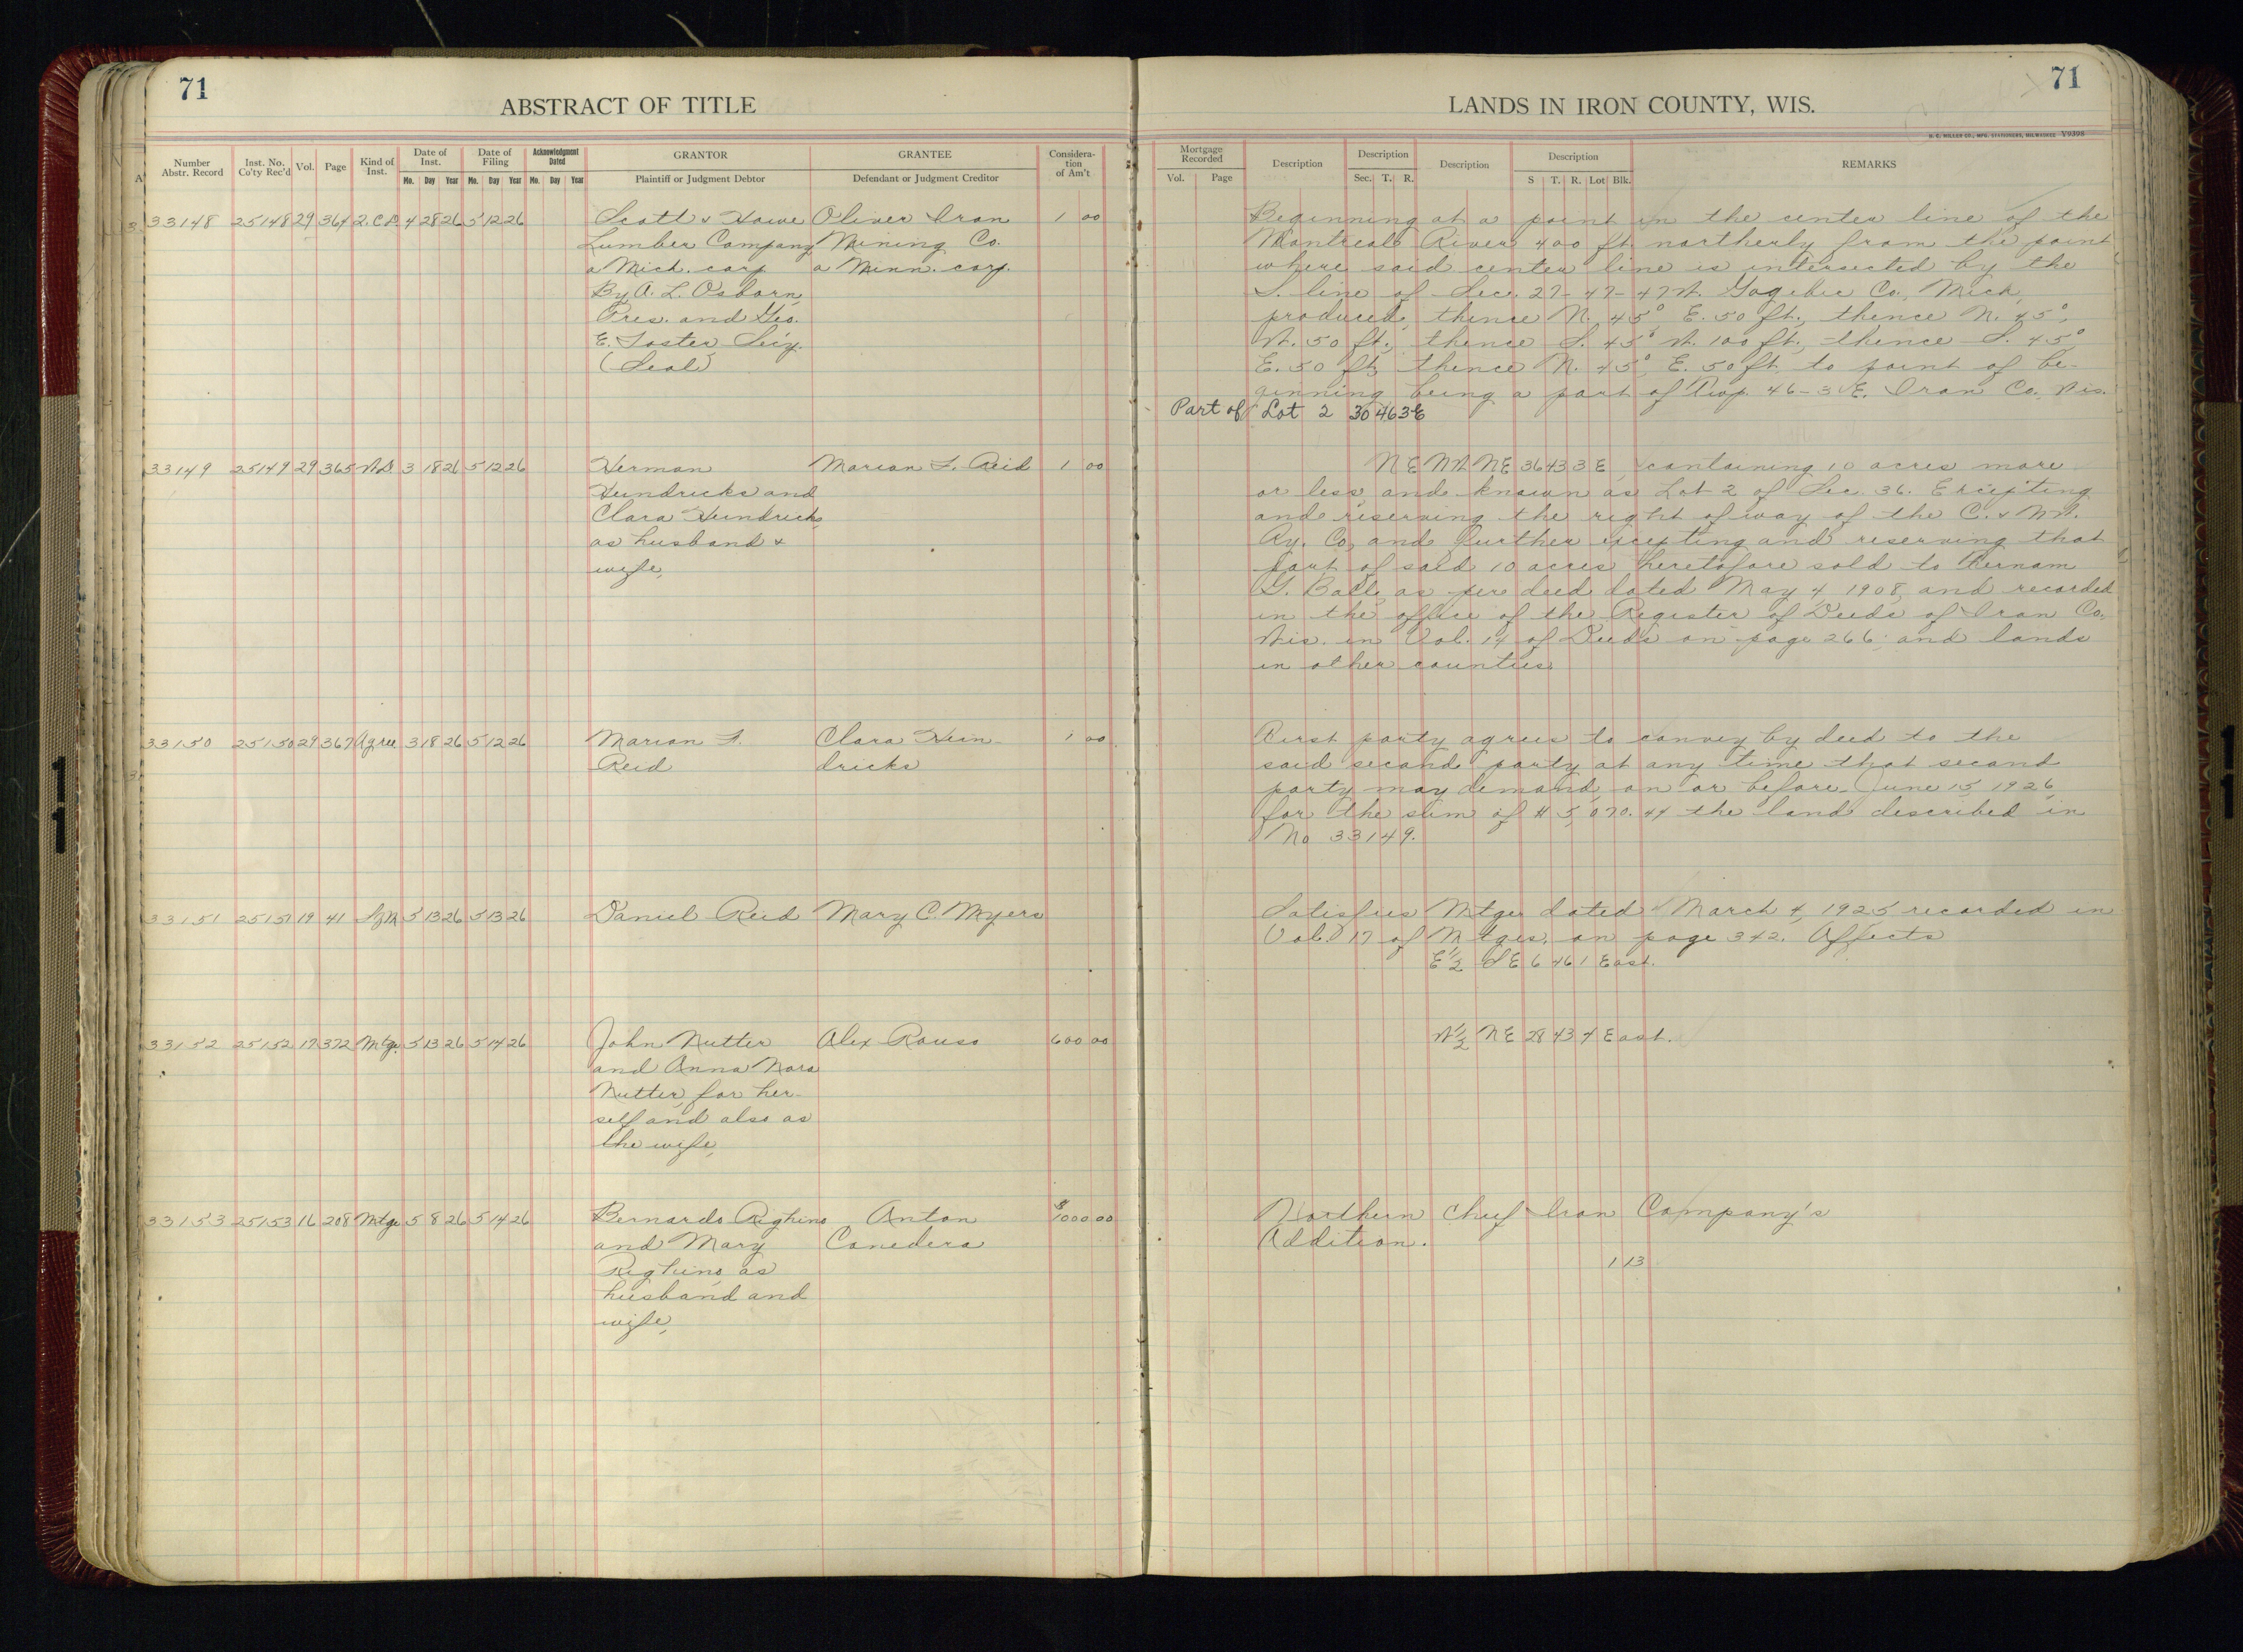 71
ABSTRACT OF TITLE
Number Abstr. Record
Inst. No. Co'ty Rec'd
Vol.
Page
Kind of Inst.
Date of Inst.
Mo. Day Year
Date of Filing
Mo. Day Year
Acknowledgment Dated
Mo. Day Year
GRANTOR
Plaintiff or Judgment Debtor
GRANTEE
Defendant or Judgment Creditor
Considera-tion of Am't
33148 25148 29 364 2.C.D. 4 28 26 5 12 26 Scott & Howe Oliver Iron 1 00
Lumber Company Mining Co.
a Mich. corp. a Minn. corp.
By A. L. Osborn,
Pres. and Geo.
E. Foster Secy.
(Seal)
33149 25149 29 365 W.D. 3 18 26 5 12 26 Herman Marion F. Reid 1 00
Heindricks and
Clara Heindricks
as husband &
wife,
33150 25150 29 367 Agree 3 18 26 5 12 26 Marion F. Clara Hein- 1 00
Reid dricks
33151 25151 19 41 SfM 5 13 26 5 13 26 Daniel Reid Mary C. Myers
33152 25152 17 372 Mtge. 5 13 26 5 14 26 John Nutter Alex Rouso 600 00
and Anna Nora
Nutter, for her-
self and also as
the wife,
33153 25153 16 208 Mtge 5 8 26 5 14 26 Bernardo Righino Anton $1000 00
and Mary Canedera
Righino as
husband and
wife,
71
LANDS IN IRON COUNTY, WIS.
H. C. MILLER CO., MFG. STATIONERS, MILWAUKEE V9398
Mortgage Recorded
Vol. Page
Description
Description
Sec. T. R.
Description
Description
S T. R. Lot Blk.
REMARKS
Beginning at a point in the center line of the
Montreal River 400 ft. northerly from the point
where said center line is intersected by the
S. line of Sec. 27-47-47W. Gogebic Co., Mich.,
produced, thence N. 45° E. 50 ft., thence N. 45°,
W. 50 ft., thence S. 45° W. 100 ft., thence S. 45°,
E. 50 ft, thence N. 45°, E. 50 ft. to point of be-
ginning being a part of Twp. 46-3E. Iron Co., Wis.
Part of Lot 2 30 46 3E
NE NW NE 36 43 3 E, containing 10 acres more
or less, and known as Lot 2 of Sec. 36. Excepting
and reserving the right of way of the C. & N.W.
Ry. Co., and further excepting and reserving that
part of said 10 acres heretofore sold to Hernam
G. Ball, as per deed dated May 4 1908, and recorded
in the office of the Register of Deeds of Iron Co.,
Wis. in Vol. 14 of Deeds on page 266; and lands
in other counties.
First party agrees to convey by deed to the
said second party at any time that second
party may demand, on or before June 15, 1926,
for the sum of $5,070.44 the land described in
No 33149.
Satisfies Mtge dated March 4, 1925 recorded in
Vol. 17 of Mtges. on page 342. Affects
E½ SE 6 46 1 East.
W½ NE 28 43 4 East.
Northern Chief Iron Company's
Addition.
1 13